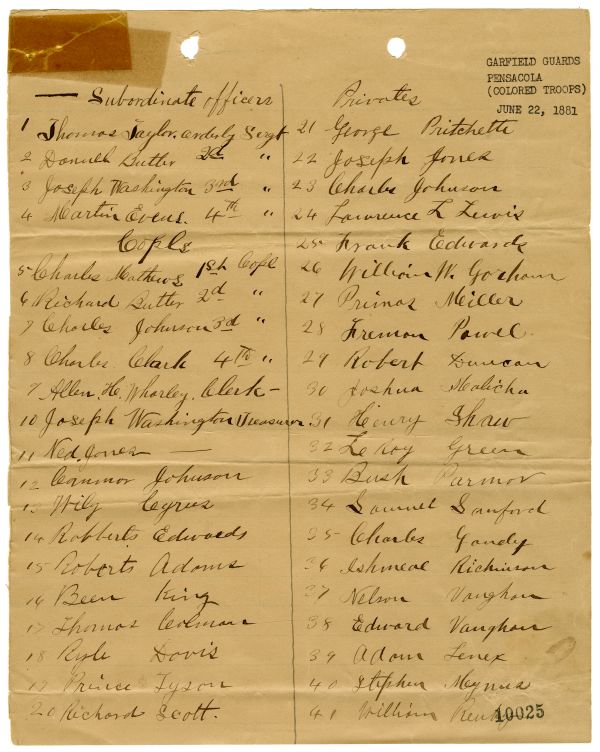 GARFIELD GUARDS
PENSACOLA
(COLORED TROOPS)
JUNE 22, 1881
— Subordinate officers
1 Thomas Taylor, orderly Sergt
2 Daniel Butler 2d "
3 Joseph Washington 3rd "
4 Martin Evens. 4th "
Copls
5 Charles Mathews 1st Copl
6 Richard Butler 2d "
7 Charles Johnson 3d "
8 Charles Clark 4th "
9 Allen. H. Wharley. Clerk —
10 Joseph Washington Treasurer
11 Ned. Jones —
12 Connor Johnson
13 Wily Cyrus
14 Robberts Edwards
15 Roberts Adams
16 Been King
17 Thomas Colman
18 Davis
19 Prince Tyson
20 Richard Scott.
Privates
21 George Pritchett
22 Joseph Jones
23 Charles Johnson
24 Lawrence L Lewis
25 Frank Edwards
26 William W. Gorham
27 Primas Miller
28 Fremon Powel
29 Robert Duncan
30 Joshua Malicha
31 Henry Shaw
32 LeRoy Green
33 Bush Parmor
34 Samuel Sanford
35 Charles Gandy
36 Ishmeal Richinson
37 Nelson Vaughan
38 Edward Vaughan
39 Adam Lenex
40 Stephen
41 William
10025